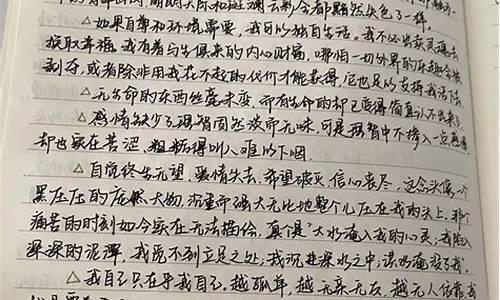 明朗天际和斑斓云彩全都黯然失色了一样。
△如果自尊和环境需要，我可以独自生活。我不必出卖灵魂去
换取幸福。我有着与生俱来的内心财富，哪怕一切外界的乐趣会被
剥夺，或者除非用我付不起的代价才能获得，它也足以支持我活下去。
△无生命的东西丝毫未变，而有生命的却已变得简直认不出来了。
△感情缺少了理智固然淡而无味，可是理智中不掺入一点感情，
却也实在苦涩、粗糙得叫人难以下咽。
△自觉终生无望，爱情失去，希望破灭，信心丧尽，这念头像一个
黑压压的庞然大物，沉重而强大无比地整个儿压在我的头上。那个
痛苦的时刻如今实在无法描绘，真个是"大水淹入我的心灵，我陷入
深深的泥潭，我觅不到立足之处；我沉进深水之中；洪水淹没了我。
△我自己只在乎我自己，越孤单，越无亲无友，越无人依靠我